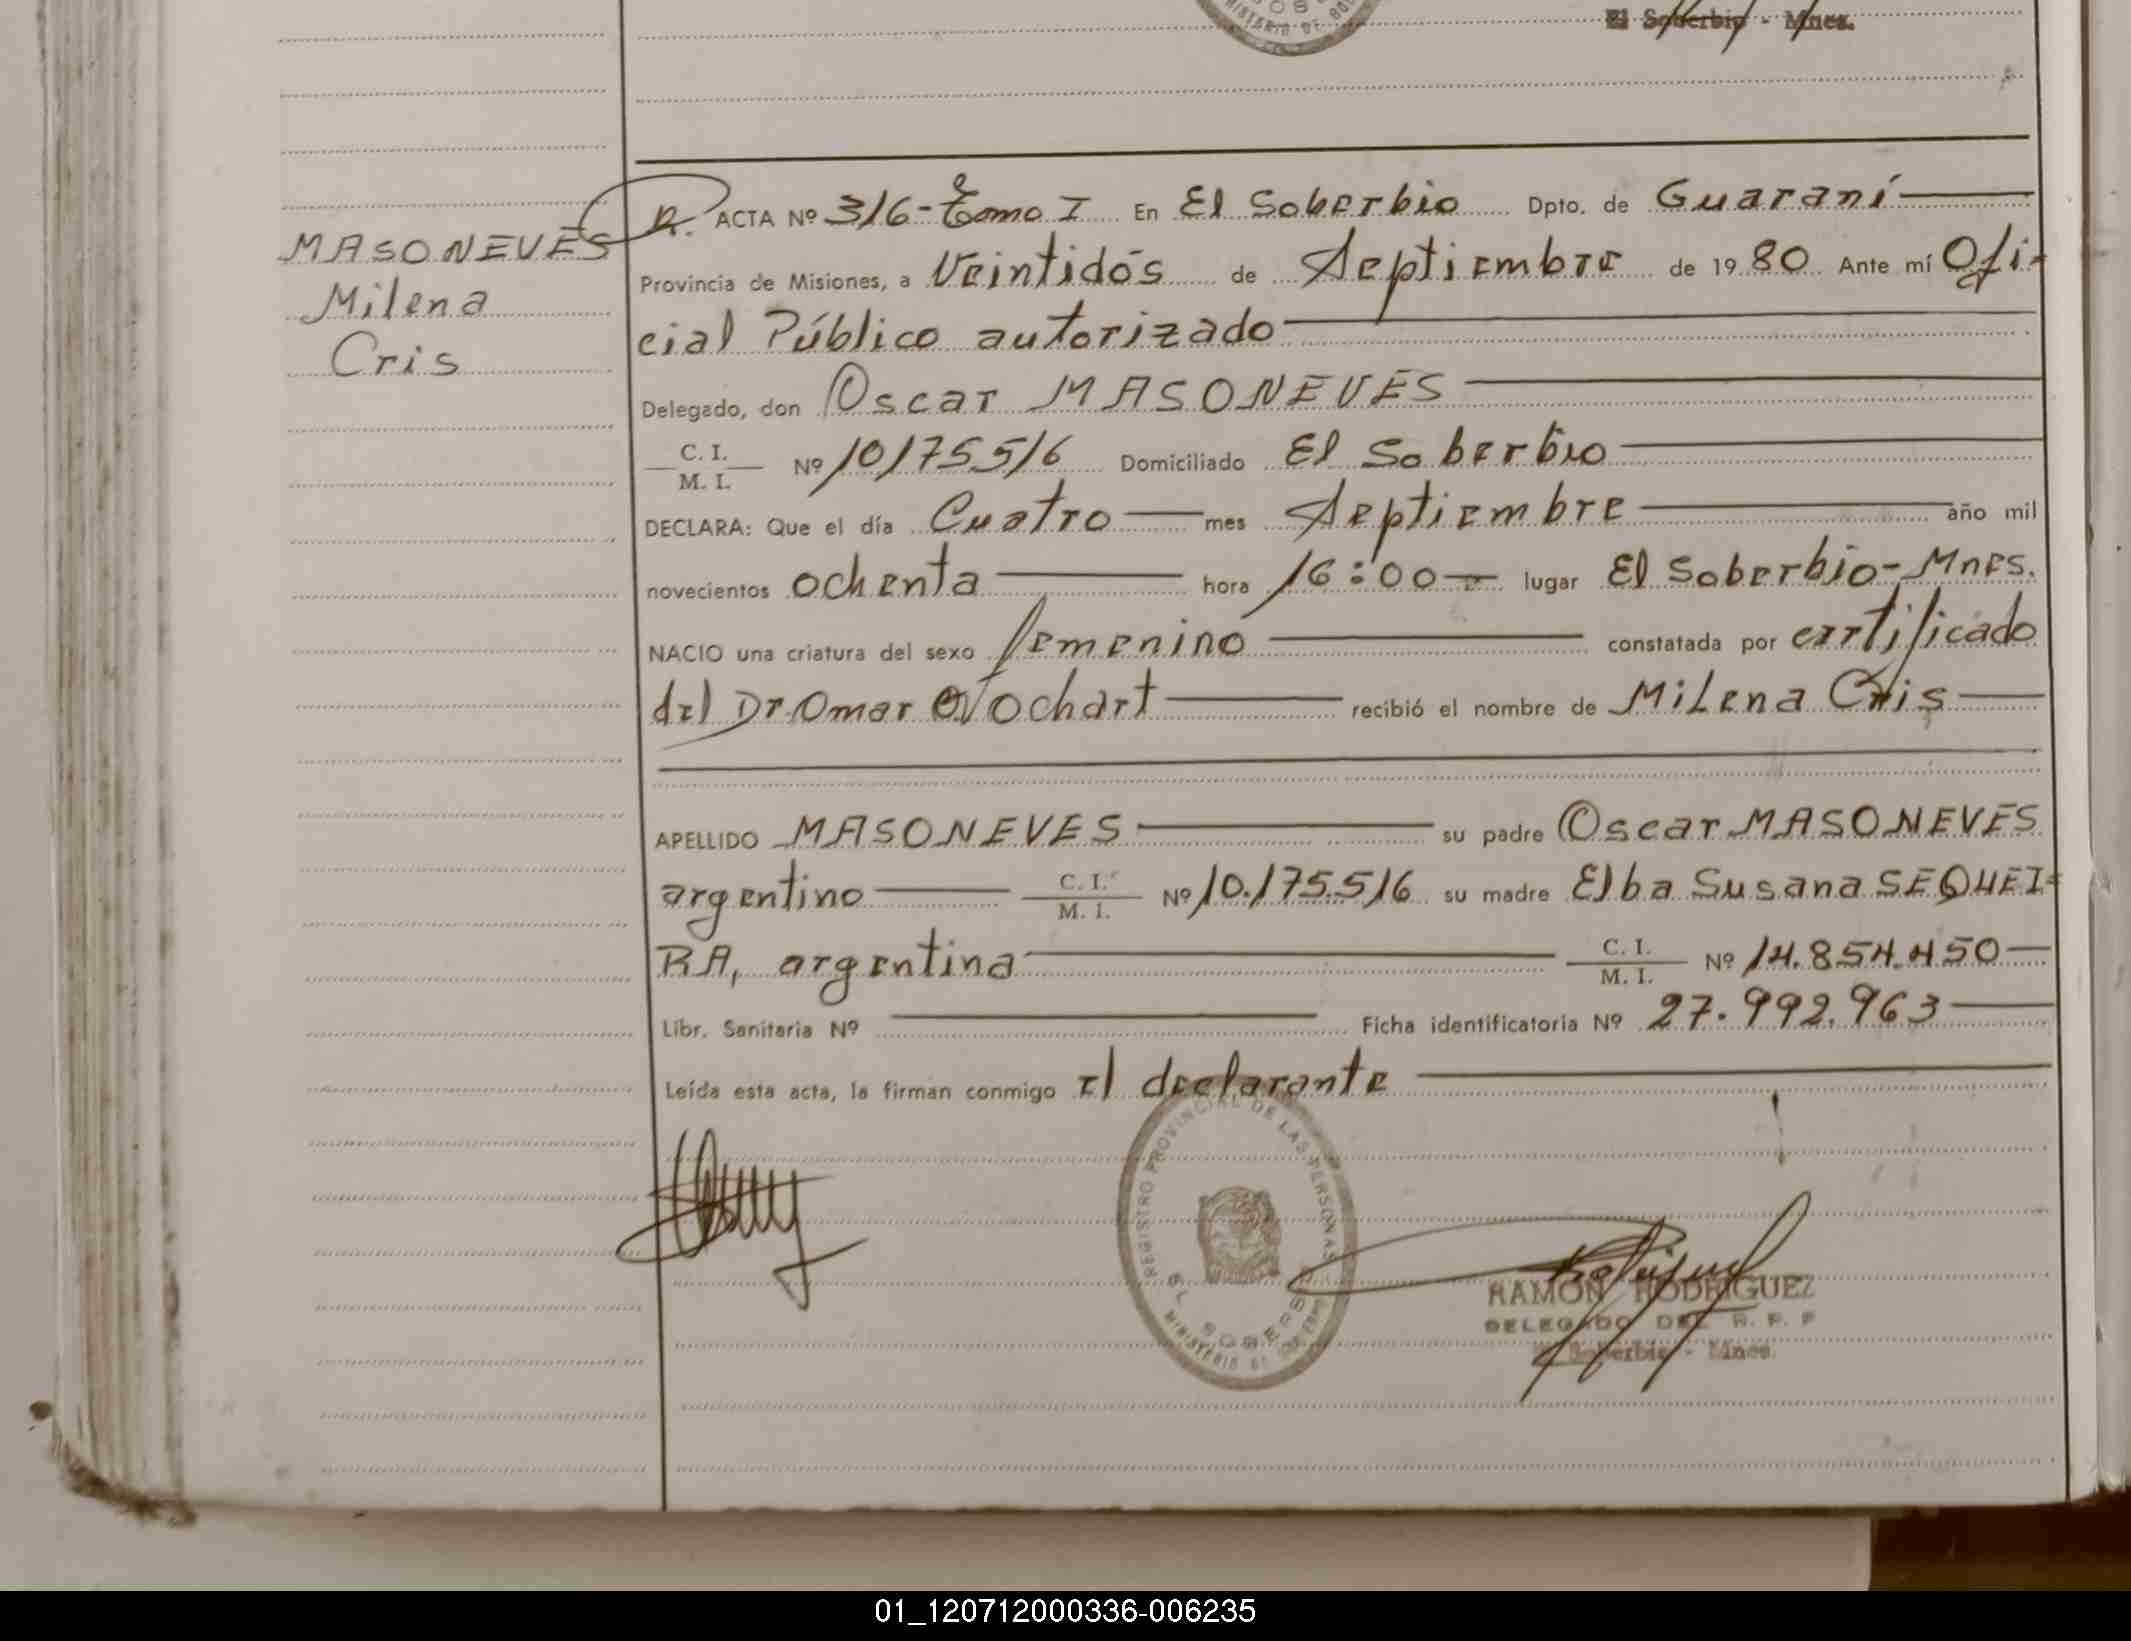 El Soberbio - Mnes.
MASONEVES
Milena
Cris
ACTA Nº 316-Tomo I En El Soberbio Dpto. de Guaraní
Provincia de Misiones, a Veintidós de Septiembre de 1980 Ante mí Ofi-
cial Público autorizado
Delegado, don Oscar MASONEVES
C. I. M. I. Nº 10175516 Domiciliado El Soberbio
DECLARA: Que el día Cuatro mes Septiembre año mil
novecientos ochenta hora 16:00 lugar El Soberbio-Mnes.
NACIO una criatura del sexo femenino constatada por certificado
del Dr. Omar Nochart recibió el nombre de Milena Cris
APELLIDO MASONEVES su padre Oscar MASONEVES
argentino C. I. M. I. Nº 10.175.516 su madre Elba Susana SEQUEI-
RA, argentina C. I. M. I. Nº 14.854.450
Libr. Sanitaria Nº Ficha identificatoria Nº 27.992.963
Leída esta acta, la firman conmigo el declarante
REGISTRO PROVINCIAL DE LAS PERSONAS
EL SOBERBIO
RAMON RODRIGUEZ
DELEGADO DEL R. P. P
El Soberbio - Mnes.
01_120712000336-006235